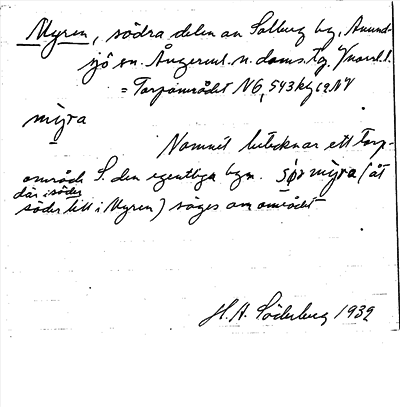 Myren, södra delen av Solberg by, Anund-
sjö sn. Ångerml. n. doms. tg. V/norrl. l.
= Torpområdet N 6, 543 kg
my̱ra
Namnet betecknar ett torp-
område S. den egentliga byn. sør my̱ra (åt
där i söder
söder till i Myren) säges om området
H. A. Söderberg 1932